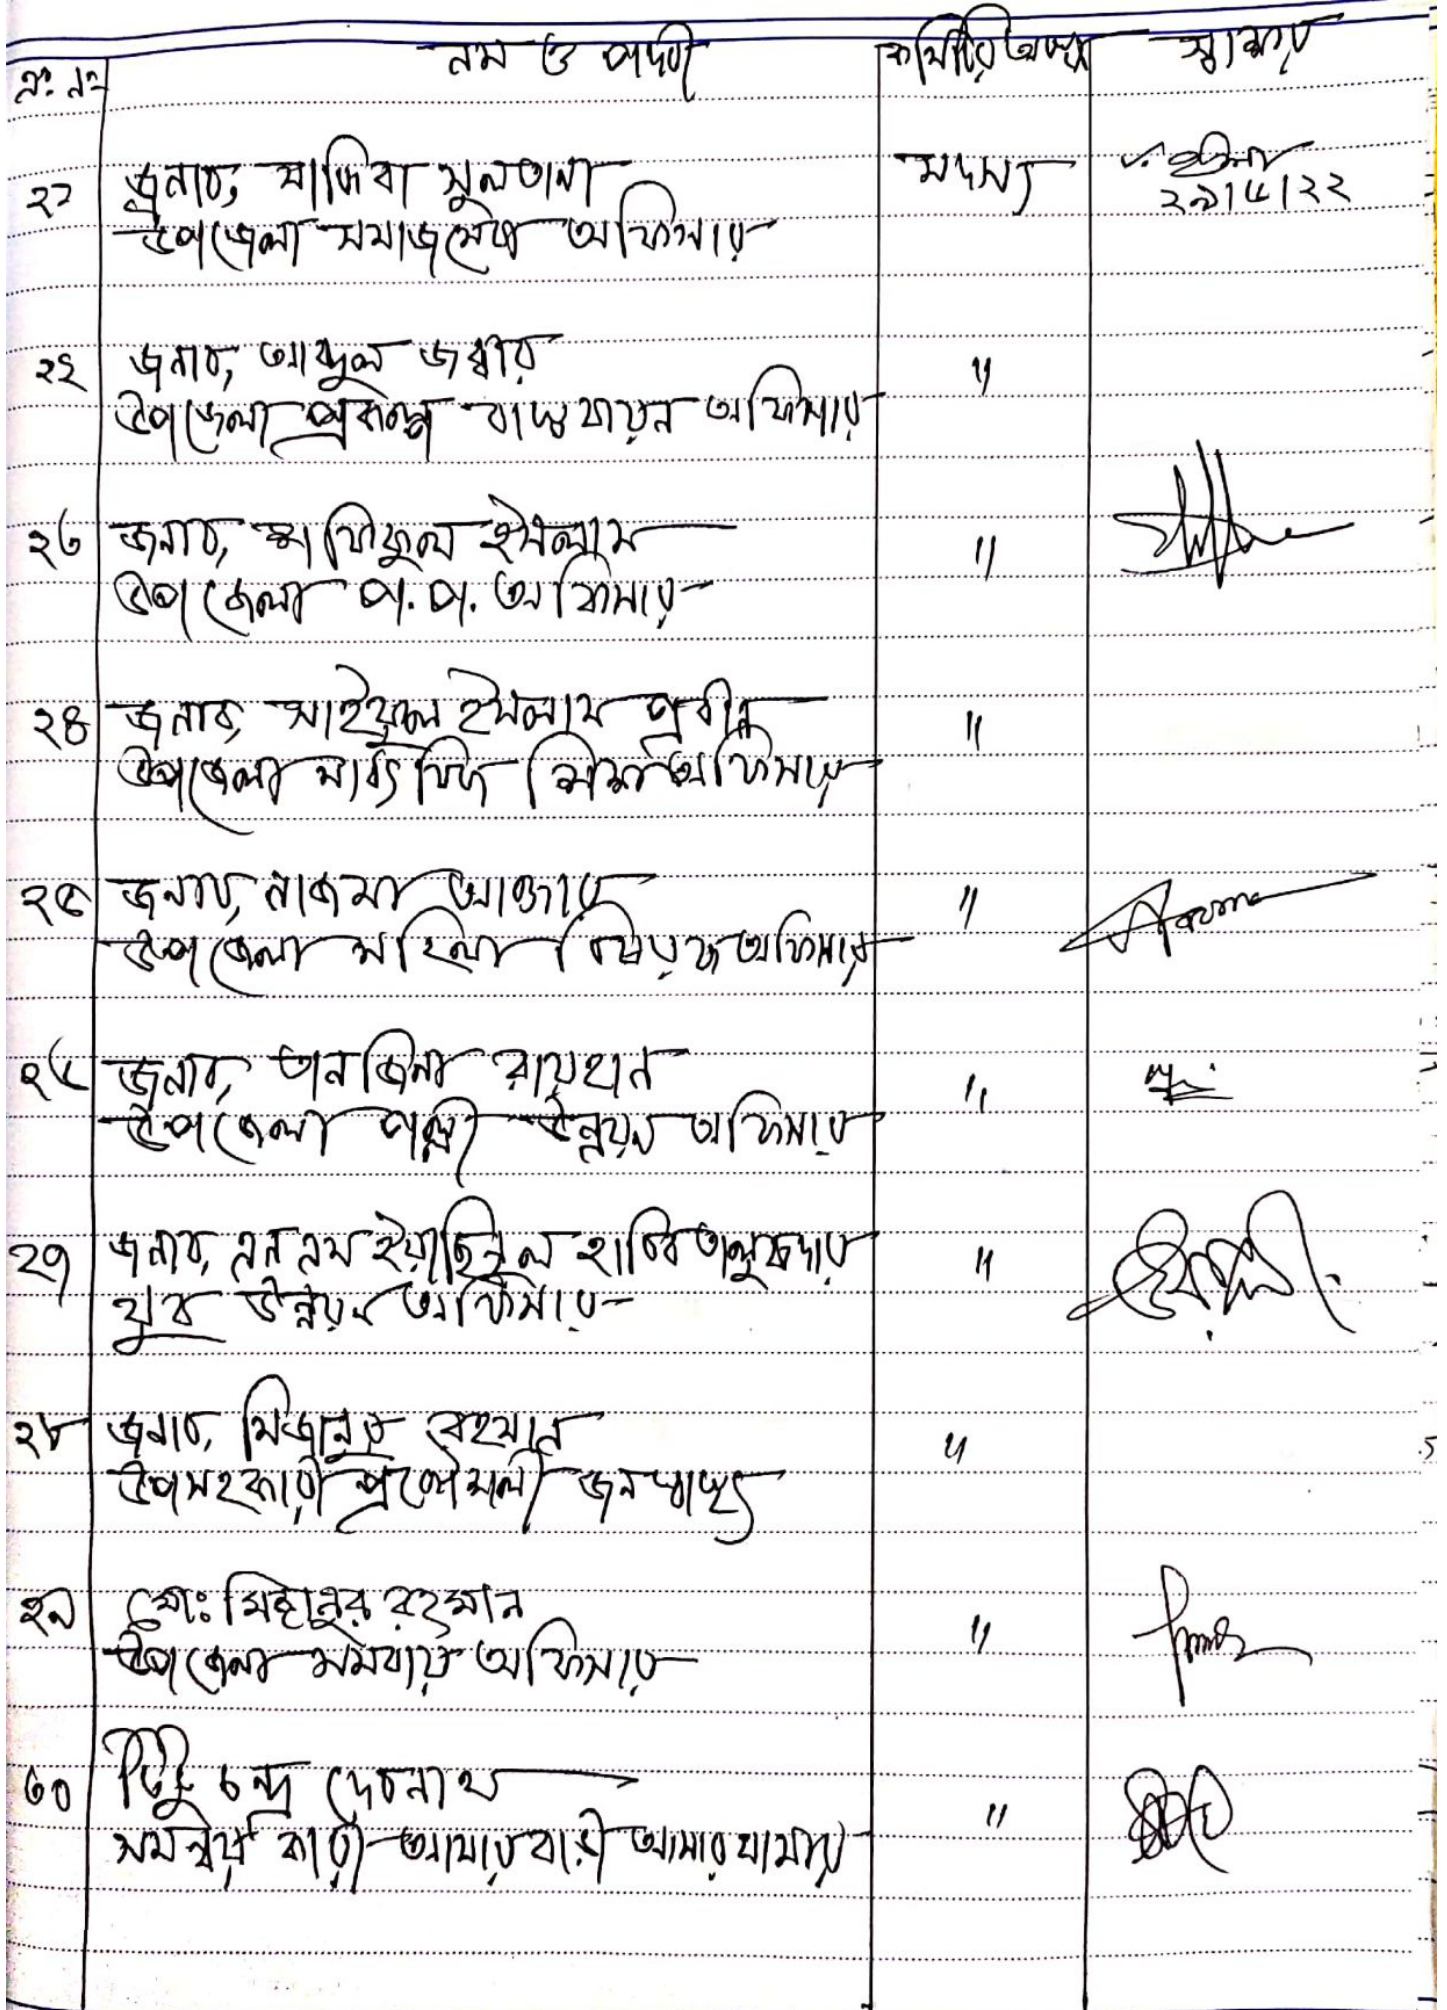 নাম ও পদবী কমিটির অবস্থান স্বাক্ষর
ক্র: নং
২১ জনাব, সাদিরা সুলতানা সদস্য
২৯/৫/২২
উপজেলা সমাজসেবা অফিসার
২২ জনাব, আব্দুল জব্বার "
উপজেলা প্রকল্প বাস্তবায়ন অফিসার
২৩ জনাব, শফিকুল ইসলাম "
উপজেলা প. প. অফিসার
২৪ জনাব, সাইফুল ইসলাম প্রবীন "
উপজেলা মাধ্যমিক শিক্ষা অফিসার
২৫ জনাব, নাজমা আক্তার "
উপজেলা মহিলা বিষয়ক অফিসার
২৬ জনাব, তানজিনা রায়হান "
উপজেলা পল্লী উন্নয়ন অফিসার
২৭ জনাব, এন এম ইয়াছিনুল হাবিব তালুকদার "
যুব উন্নয়ন অফিসার
২৮ জনাব, মিজানুর রহমান "
উপসহকারী প্রকৌশলী জনস্বাস্থ্য
২৯ মোঃ মিজানুর রহমান "
উপজেলা সমবায় অফিসার
৩০ টিটু চন্দ্র দেবনাথ "
সমন্বয়কারী আমার বাড়ী আমার খামার